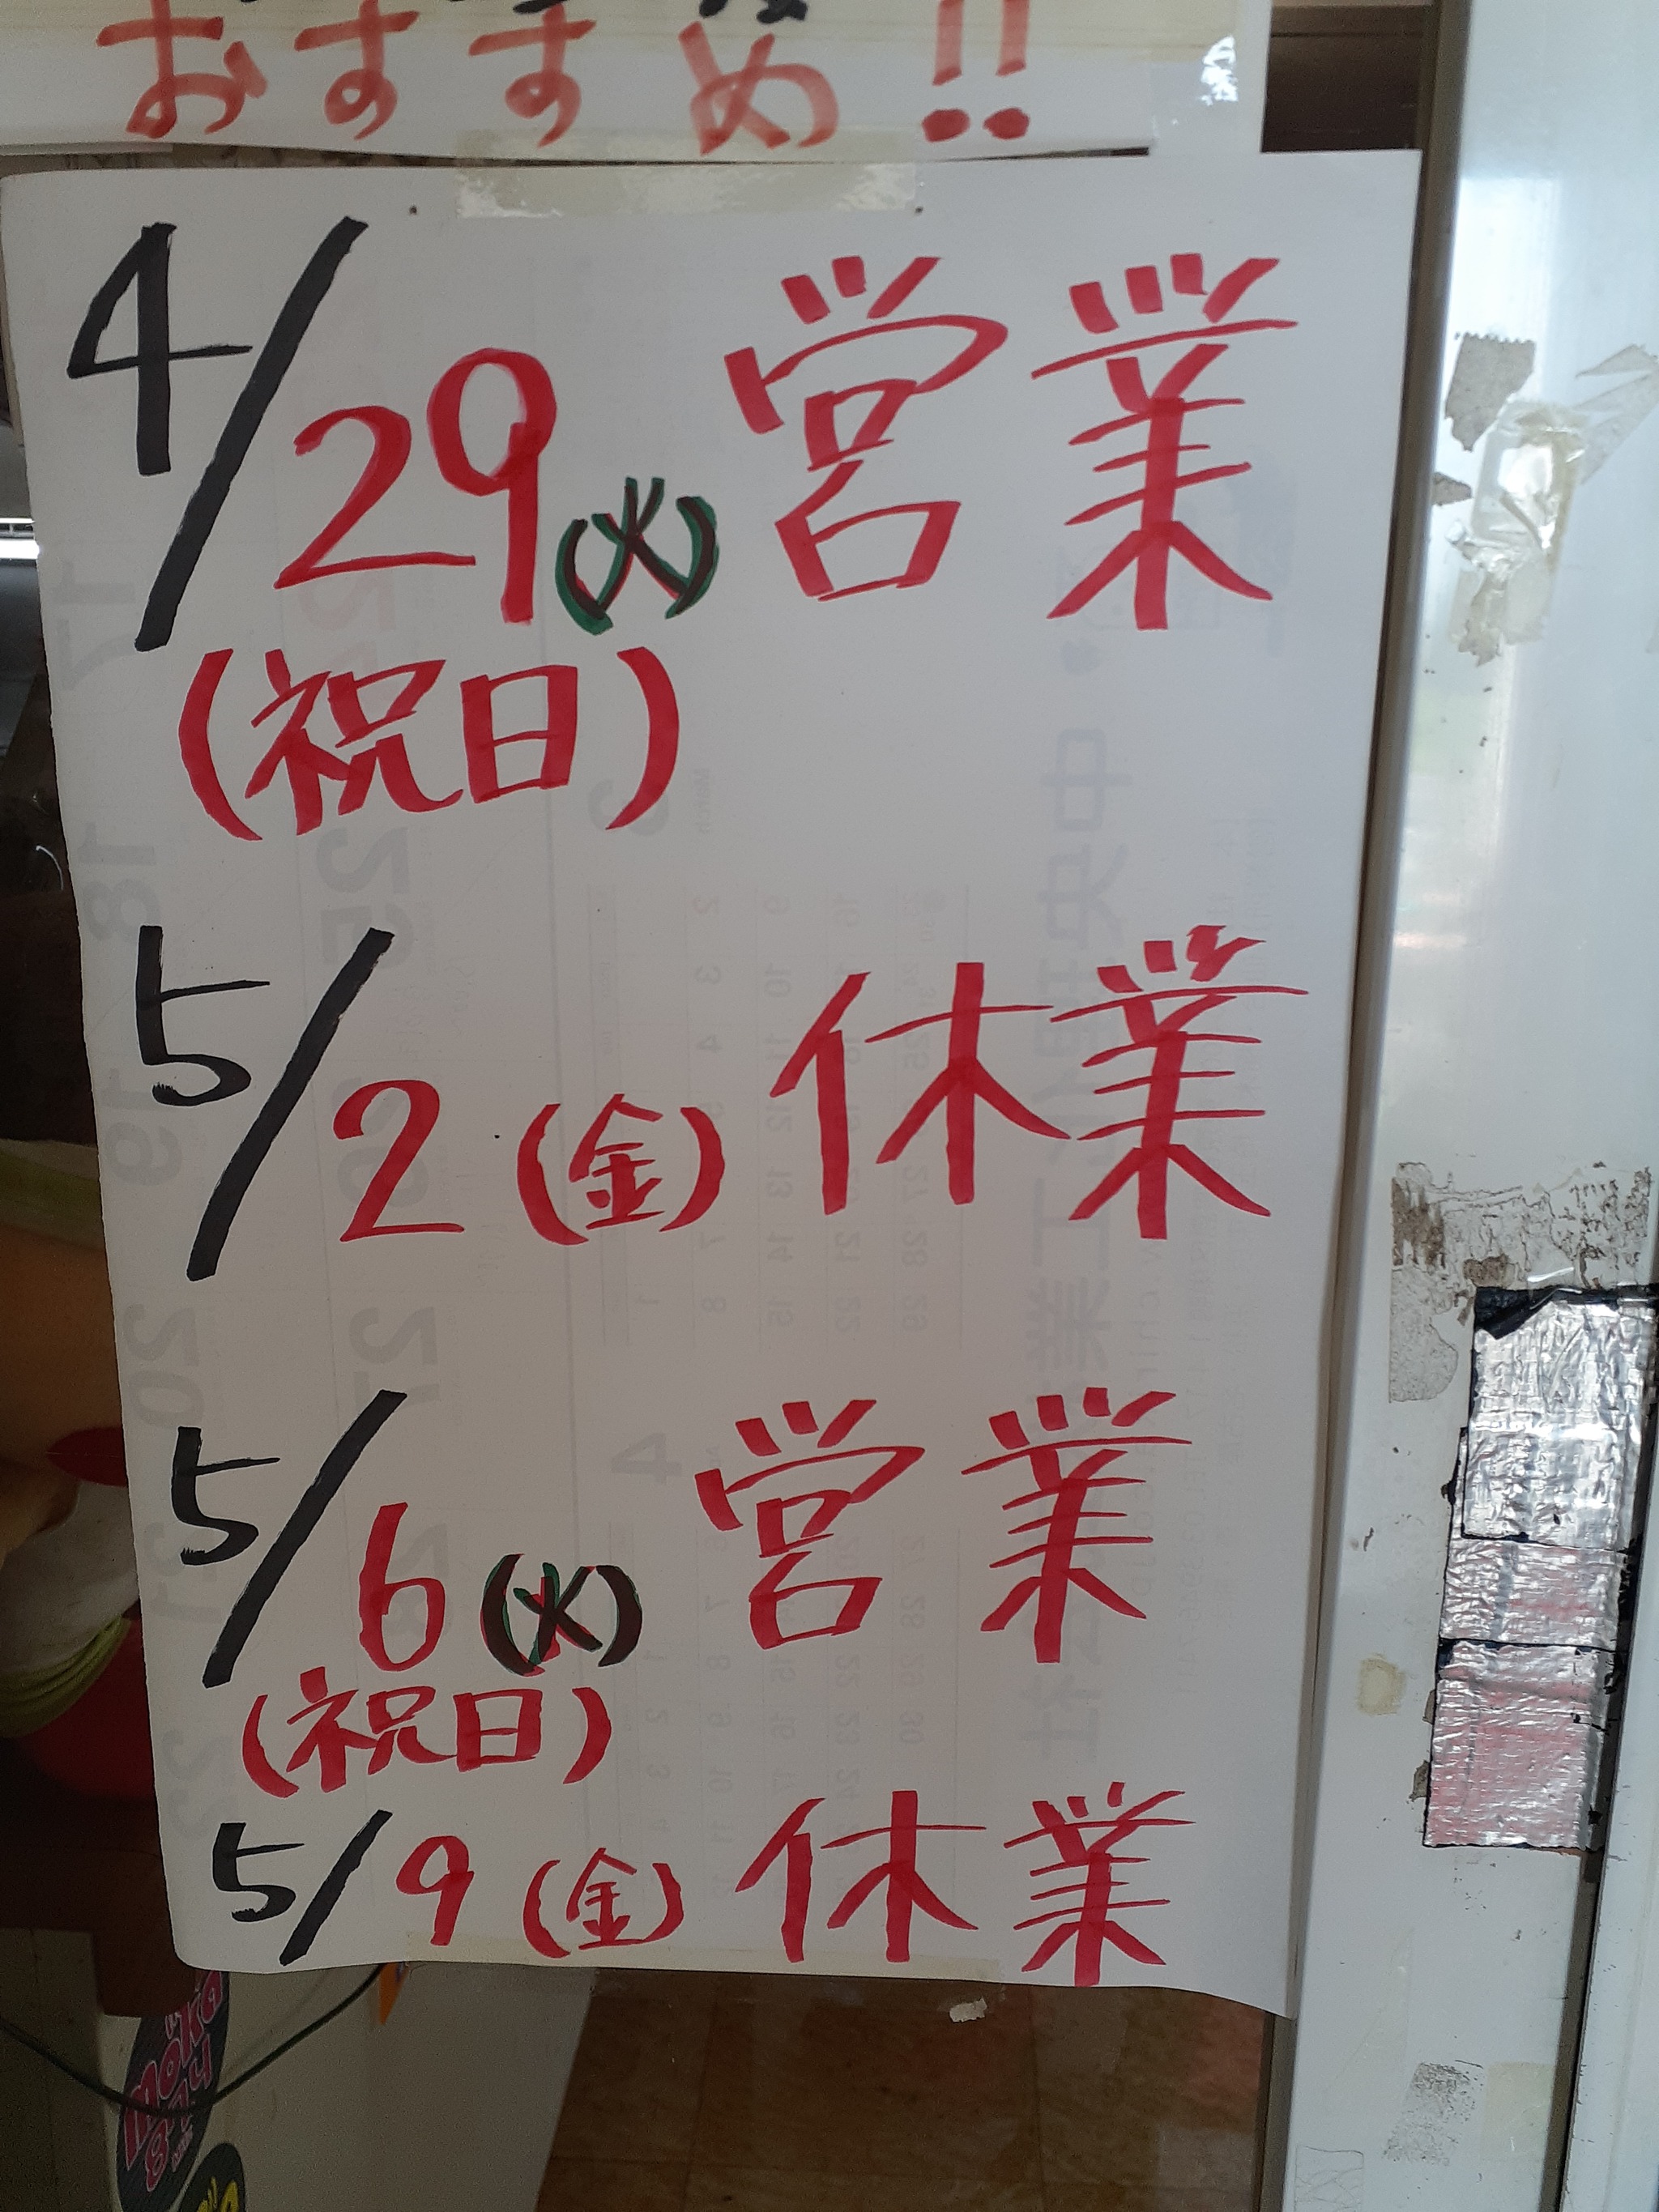 おすすめ!!
4/29(火) 営業
(祝日)
5/2(金) 休業
5/6(火) 営業
(祝日)
5/9(金) 休業